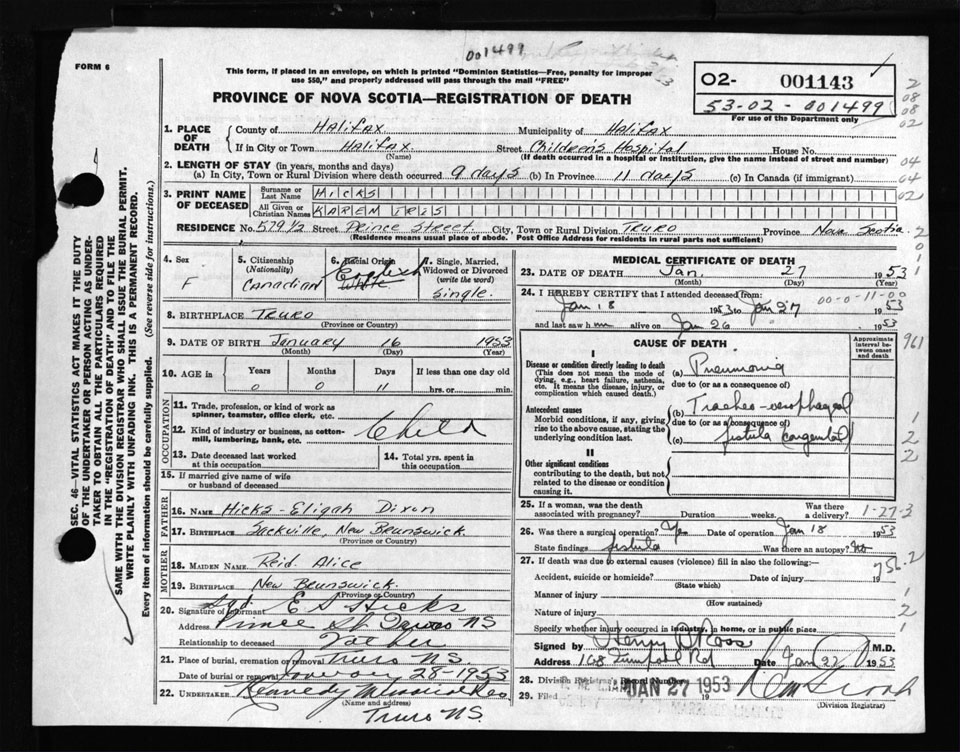 FORM 6
001499
This form, if placed in an envelope, on which is printed "Dominion Statistics—Free, penalty for improper
use $50," and properly addressed will pass through the mail "FREE"
PROVINCE OF NOVA SCOTIA—REGISTRATION OF DEATH
02- 001143
53-02-001499
For use of the Department only
1. PLACE OF DEATH
County of Halifax Municipality of Halifax
If in City or Town Halifax Street Children's Hospital House No.
(Name) (If death occurred in a hospital or institution, give the name instead of street and number)
2. LENGTH OF STAY (in years, months and days)
(a) In City, Town or Rural Division where death occurred 9 days (b) In Province 11 days (c) In Canada (if immigrant)
3. PRINT NAME OF DECEASED
Surname or Last Name HICKS
All Given or Christian Names KAREN IRIS
RESIDENCE No. 579 1/2 Street Prince Street City, Town or Rural Division Truro Province Nova Scotia
(Residence means usual place of abode. Post Office Address for residents in rural parts not sufficient)
4. Sex F
5. Citizenship (Nationality) Canadian
6. Racial Origin English White
7. Single, Married, Widowed or Divorced (write the word) Single.
8. BIRTHPLACE Truro
(Province or Country)
9. DATE OF BIRTH January 16 1953
(Month) (Day) (Year)
10. AGE in Years 0 Months 0 Days 11 If less than one day old
hrs. or min.
OCCUPATION
11. Trade, profession, or kind of work as spinner, teamster, office clerk, etc.
12. Kind of industry or business, as cotton-mill, lumbering, bank, etc. Child
13. Date deceased last worked at this occupation
14. Total yrs. spent in this occupation
15. If married give name of wife or husband of deceased
FATHER
16. NAME Hicks - Eligah Dixon
17. BIRTHPLACE Sackville, New Brunswick.
(Province or Country)
MOTHER
18. MAIDEN NAME Reid Alice
19. BIRTHPLACE New Brunswick.
(Province or Country)
20. Signature of informant Sgd. E S Hicks
Address Prince St Truro NS
Relationship to deceased Father
21. Place of burial, cremation or removal Truro NS.
Date of burial or removal January 28-1953
22. UNDERTAKER Kennedy
(Name and address)
Truro NS.
MEDICAL CERTIFICATE OF DEATH
23. DATE OF DEATH Jan. 27 1953
(Month) (Day) (Year)
24. I HEREBY CERTIFY that I attended deceased from:
Jan 18 1953 to Jan 27 1953
00-0-11-00
and last saw him alive on Jan 26 1953
CAUSE OF DEATH
Approximate interval between onset and death
I
Disease or condition directly leading to death
(This does not mean the mode of dying, e.g., heart failure, asthenia, etc. It means the disease, injury, or complication which caused death.)
(a) Pneumonia
due to (or as a consequence of)
Antecedent causes
Morbid conditions, if any, giving rise to the above cause, stating the underlying condition last.
(b) Tracheo-oesophageal
due to (or as a consequence of)
(c) fistula congenital
II
Other significant conditions
contributing to the death, but not related to the disease or condition causing it.
25. If a woman, was the death associated with pregnancy? Duration weeks. Was there a delivery?
1-27-3
26. Was there a surgical operation? Yes Date of operation Jan 18 1953
State findings fistula Was there an autopsy? No
27. If death was due to external causes (violence) fill in also the following:
756.2
Accident, suicide or homicide? Date of injury 19
(State which)
Manner of injury
(How sustained)
Nature of injury
Specify whether injury occurred in industry, in home, or in public place
Signed by Henry Ross M.D.
Address 168 Rd Date Jan 27 1953
28. Division Registrar's Record Number
29. Filed JAN 27 1953 19
(Division Registrar)
SEC. 46—VITAL STATISTICS ACT MAKES IT THE DUTY
OF THE UNDERTAKER OR PERSON ACTING AS UNDER-
TAKER TO OBTAIN ALL THE PARTICULARS REQUIRED
IN THE "REGISTRATION OF DEATH" AND TO FILE THE
SAME WITH THE DIVISION REGISTRAR WHO SHALL ISSUE THE BURIAL PERMIT.
WRITE PLAINLY WITH UNFADING INK. THIS IS A PERMANENT RECORD.
Every item of information should be carefully supplied. (See reverse side for instructions.)
2
08
08
02
04
04
02
2
0
1
961
1
2
2
1
2
1